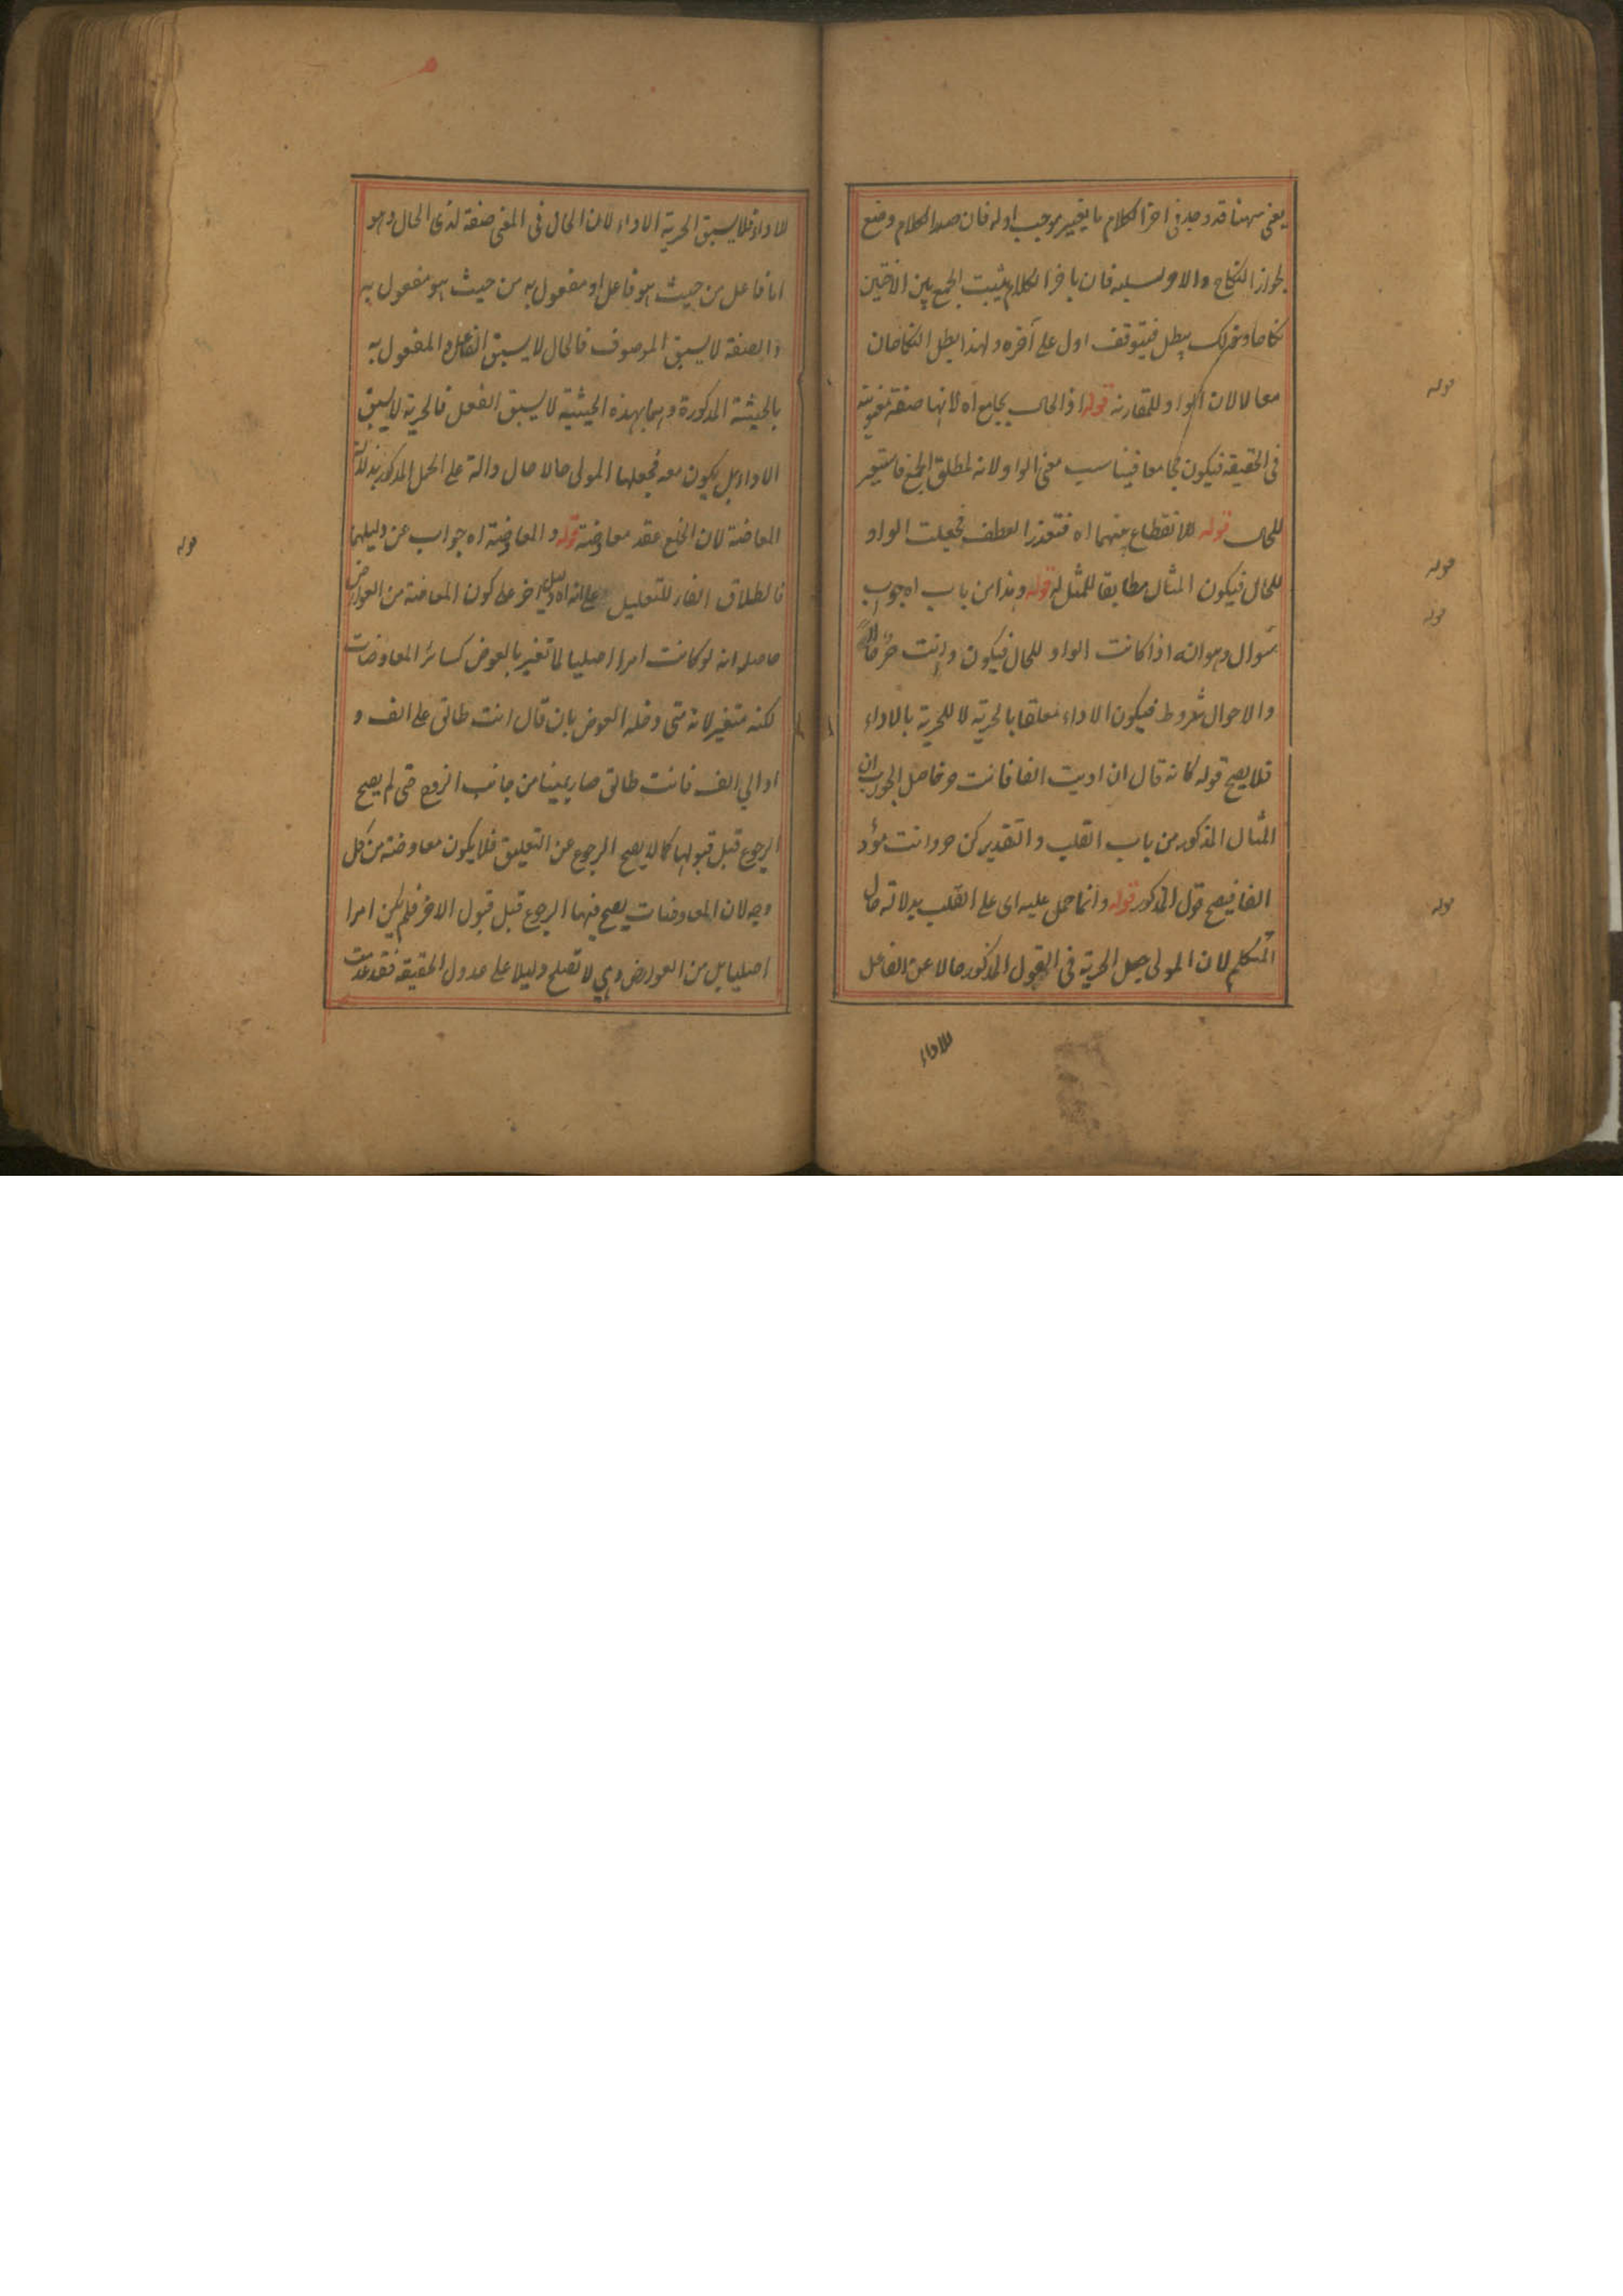 يعنى ههنا قد وجد فى اخر الكلام ما يغير موجب اوله فان صدر الكلام وضع
لجواز النكاح والاخر يسلبه فان باخر الكلام يثبت الجمع بين الاختين
نكاحا وتحريك يبطل فيتوقف اول على آخره ولهذا بطل النكاحان
معا لا لان الواو للمقارنة قوله اذ الحال يجامع اه لانها صفة معنوية
فى الحقيقة فيكون مجامعا فيناسب معنى الواو لانه لمطلق الجمع فاستعير
للحال قوله لا نقطاع بينهما اه فتعذر العطف فجعلت الواو
للحال فيكون المثال مطابقا للمثل له قوله وهذا من باب اه جواب
سوال وهو انه اذا كانت الواو للحال فيكون وانت حر حالا
والاحوال شروط فيكون الاداء معلقا بالحرية لا للحرية بالاداء
فلا يصح قوله كانه قال ان اديت الفا فانت حر فاصل الجواب ان
المثال المذكور من باب القلب والتقدير كن حر وانت مؤد
الفا فيصح قول المذكور قوله وانما حمل عليه اى على القلب بدلالة حال
المتكلم لان المولى جعل الحرية فى القول المذكور حالا عن الفاعل
للاداء
للاداء فلا يسبق الحرية الاداء لان الحال فى المعنى صفة لذى الحال وهو
اما فاعل من حيث هو فاعل او مفعول به من حيث هو مفعول به
والصفة لا يسبق الموصوف فالحال لا يسبق الفاعل و المفعول به
بالحيثية المذكورة وهما بهذه الحيثية لا يسبق الفعل فالحرية لا يسبق
الاداء بل يكون معه فجعلها المولى حالا حال دالة على الحمل المذكور بدلالة
المعاضة لان الخلع عقد معاوضة قوله والمعاوضة اه جواب عن دليلهما
فالطلاق الفاء للتعليل على انه اه دليل اخر على كون المعاضة من العوارض
حاصله انه لو كانت امرا اصليا لما تغير بالعوض كسائر المعاوضات
لكنه متغير لانه متى دخله العوض بان قال انت طالق على الف و
ادى الى الف فانت طالق صار يمينا من جانب الزوج حتى لم يصح
الرجوع قبل قبولها كما لا يصح الرجوع عن التعليق فلا يكون معاوضة من كل
وجه لان المعاوضات يصح فيها الرجوع قبل قبول الاخر فلم يكن امرا
اصليا بل من العوارض وهي لا تصلح دليلا على عدول الحقيقة فقد عدمت
قوله
قوله
قوله
قوله
قوله